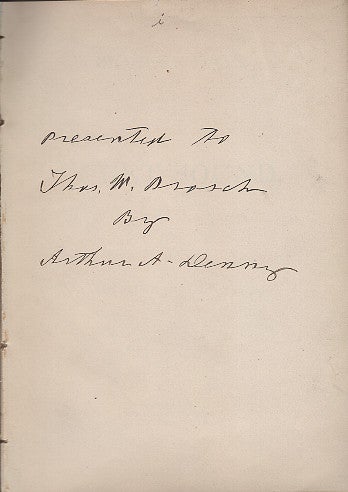 Presented to
Thos. M. Prosch
By
Arthur A. Denny